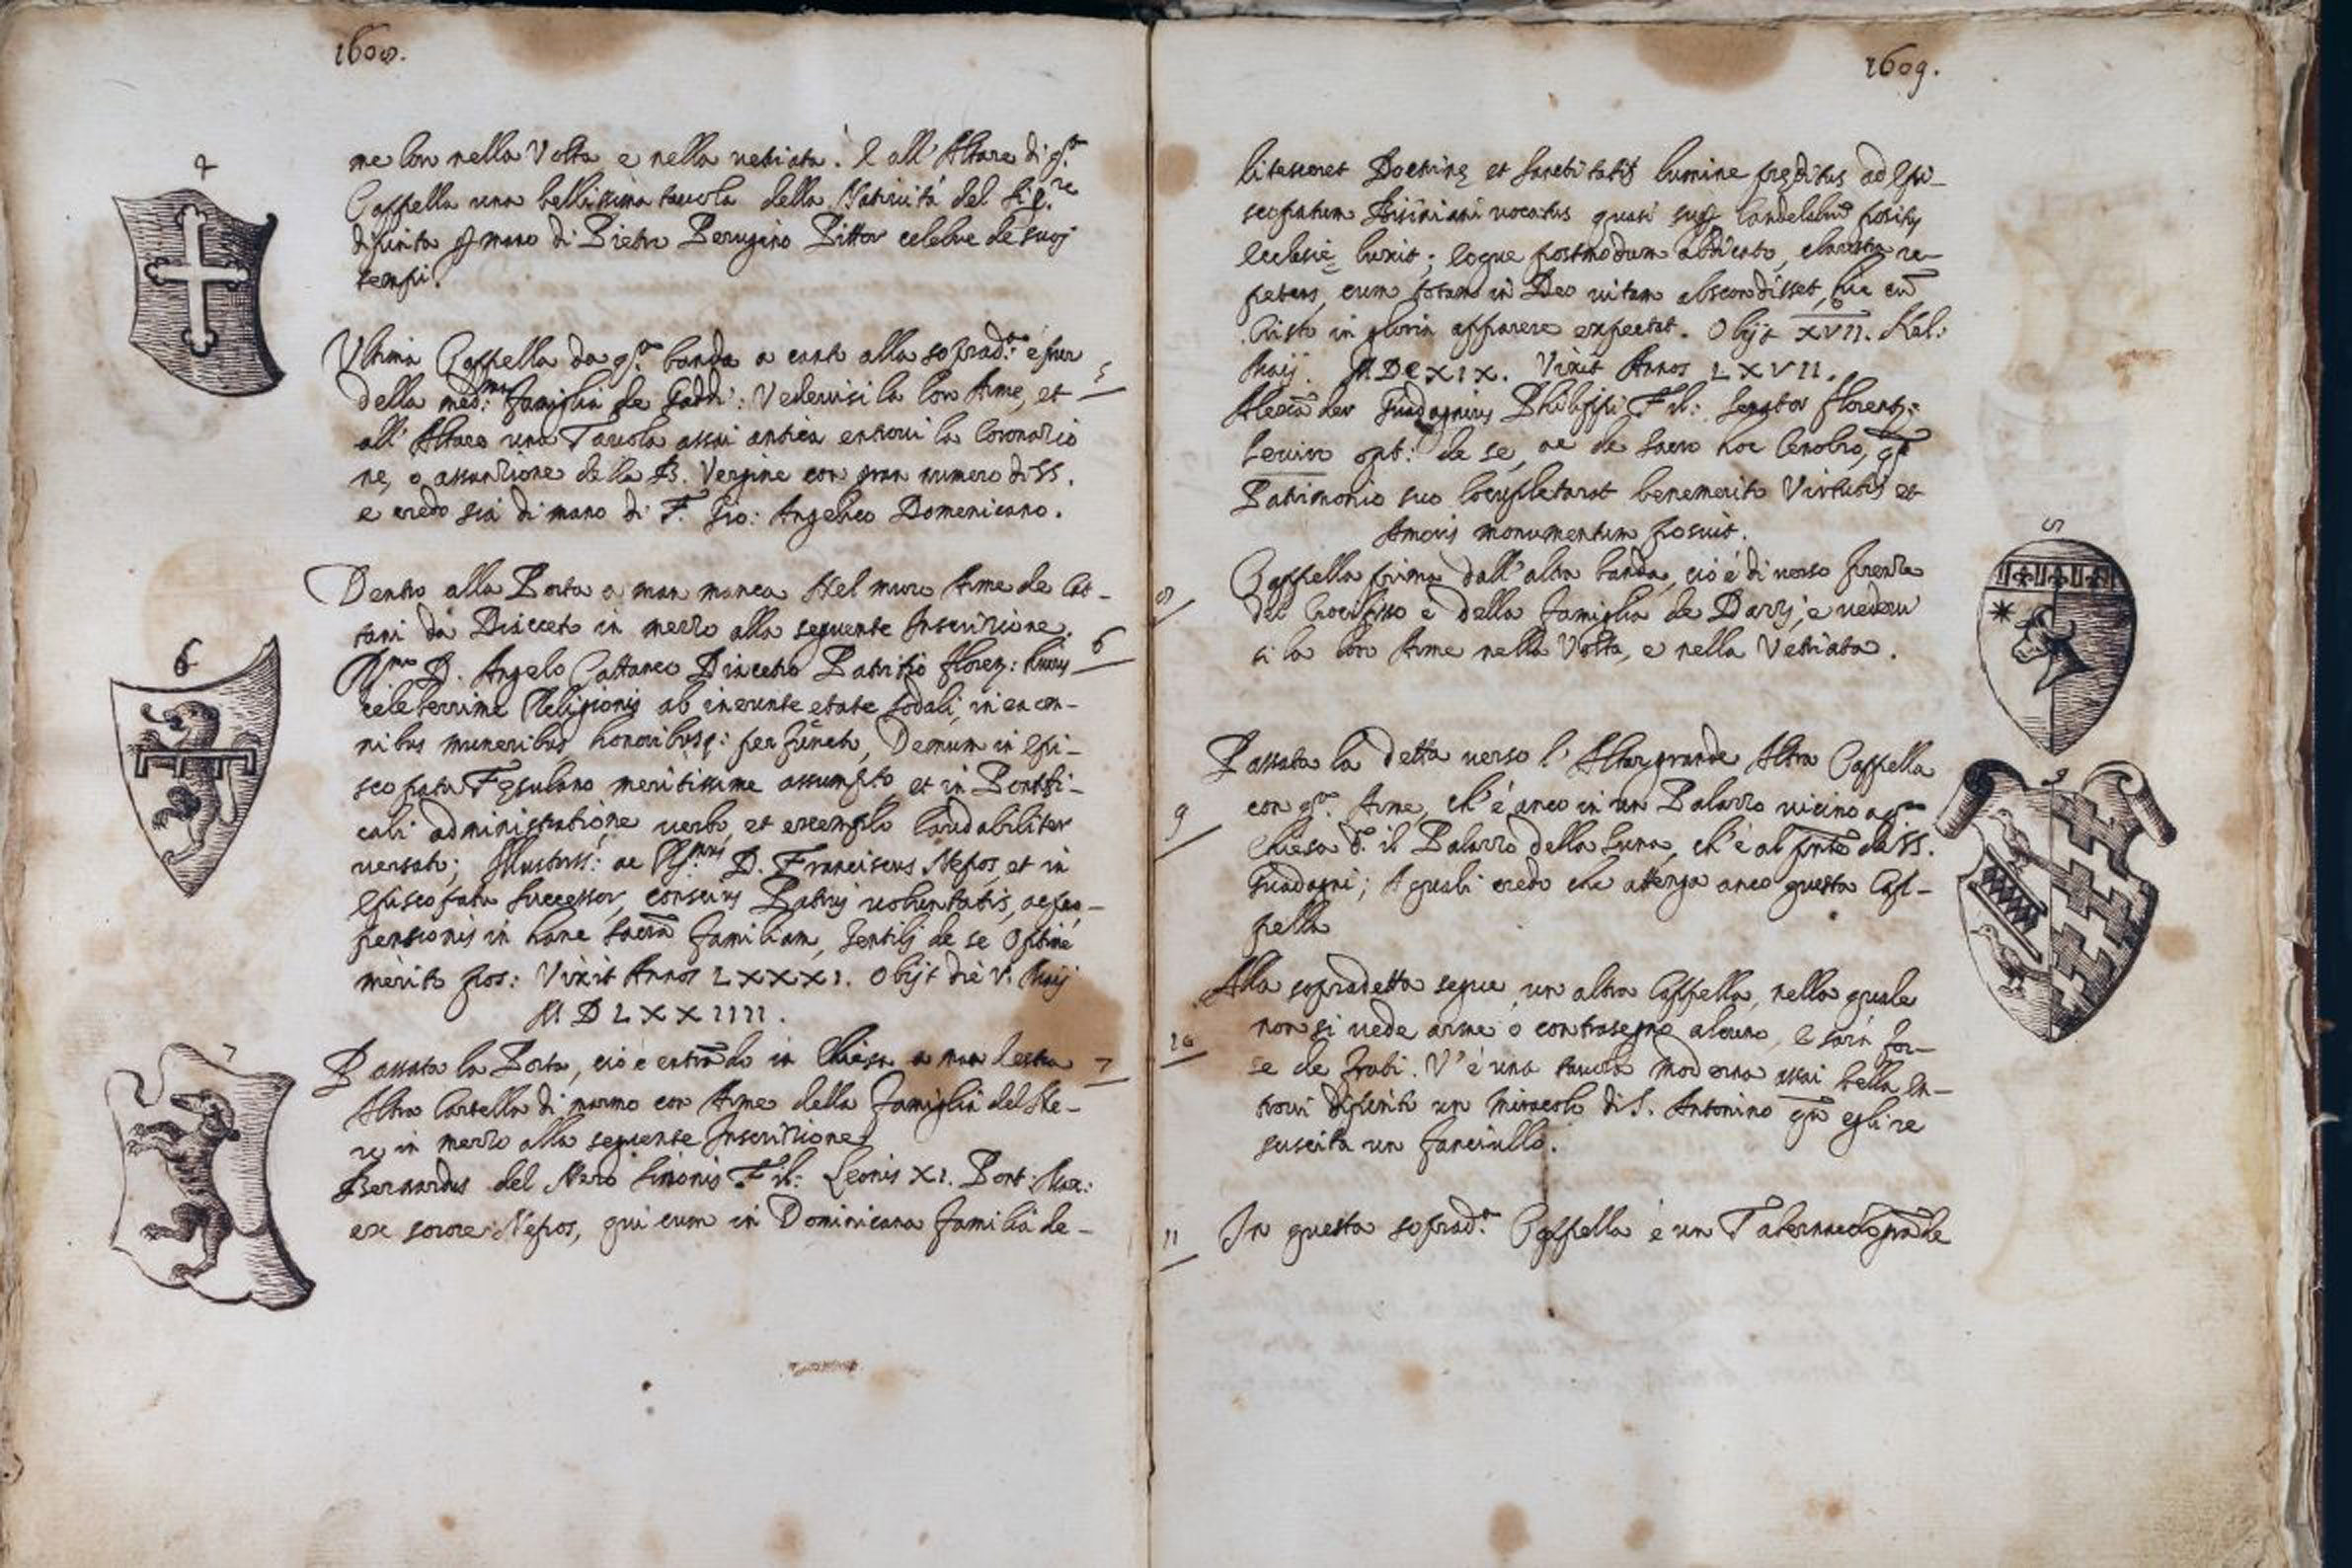 1608.
4
me loro nella Volta e nella vetriata. E all'Altare di q.ta
Cappella una bellissima tavola della Natività del Sig.re
dipinta p mano di Pietro Perugino Pittor celebre de suoj
tempi.
Ultima Cappella da q.ta banda a canto alla soprad.ta è pur
5
della med.ma famiglia de Gaddi: Vedervisi la loro Arme, et
all'Altare una Tavola assai antica entrovi la Coronatio
ne, o assunzione della B. Vergine con gran numero di SS.
e credo sia di mano di F. Gio: Angelico Domenicano.
Dentro alla Porta a man manca Nel muro Arme de Cat-
tani da Diacceto in mezzo alla seguente Inscrizione.
6
6
R.mo D. Angelo Cattaneo Diacetto Patritio floren: huius
celeberrime Religionis ab ineunte etate sodali, in ea om-
nibus muneribus, honoribusq: perfuncto, Demum in Epi-
scopatu Fesulano meritissime assumpto et in Pontifi-
cali administratione verbo, et exemplo laudabiliter
versato; Illustriss: ac R.mus D. Franciscus Nepos, et in
Episcopatu Successor, conscius Patrij voluntatis, ac pro-
pensionis in hanc sacrā familiam, Gentili de se optime
merito pos: Vixit Annos LXXXI. Obijt die V. Maij
MDLXXIIII.
7
Passata la Porta, cio è entrādo in Chiesa a man destra
7
Altra Cartella di marmo con Arme della famiglia del Ne-
ro in mezzo alla seguente Inscrizione
Bernardus del Nero Simonis Fil: Leonis XI. Pont: Max:
ex sorore Nepos, qui cum in Dominicana familia de-
1609.
litesceret Doctrinę et Sanctitatis lumine pręditus ad Epi-
scopatum Bisiniani vocatus quasi sup candelabrū positus
Ecclesię luxit; eoque postmodum abdicato, claustra re-
petens, cum totam in Deo vitam abscondisset, hic cū
Cristo in gloria apparere expectat. Obijt XVII. Kal:
Maij. MDCXIX. Vixit Annos LXVII.
Alexāder Guadagnius Philippi Fil: Senator florent:
Levivo opt: de se, ac de sacro hoc Cenobio, q
Patrimonio suo locupletarat benemerito Virtutis et
Amoris monumentum posuit.
8
Cappella prima dall'altra banda, cio è di verso firenze
8
del Crocifisso e della famiglia de Darrj, e vedevi
si la loro Arme nella Volta, e nella Vetriata.
Passata la detta verso l'Altar grande Altra Cappella
9
9
con q.ta Arme, ch'è anco in un Palazzo vicino a q.ta
Chiesa d. il Palazzo della Luna, ch'è al pnte de SS.
Guadagni; A quali credo che attenga anco questa Cap-
pella
Alla sopradetta segue un altra Cappella, nella quale
10
non si vede arme o contrasegno alcuno, e sarà for-
se de frati. V'è una tavola moderna assai bella En-
trovi dipinto un miracolo di S. Antonino qn egli re
suscita un fanciullo.
11
In questa soprad.ta Cappella è un Tabernacolo grāde